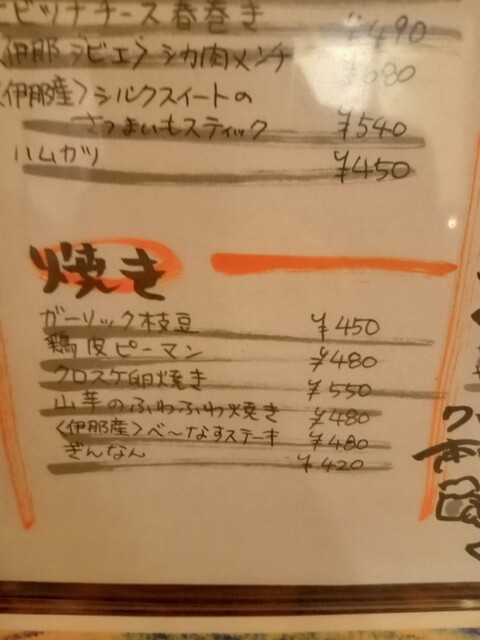 エビツナチーズ春巻き ¥490
〈伊那ジビエ〉シカ肉メンチ ¥680
〈伊那産〉シルクスイートの
さつまいもスティック ¥540
ハムカツ ¥450
焼き
ガーリック枝豆 ¥450
鶏皮ピーマン ¥480
クロスケ卵焼き ¥550
山芋のふわふわ焼き ¥480
〈伊那産〉べ〜なすステーキ ¥480
ぎんなん ¥420